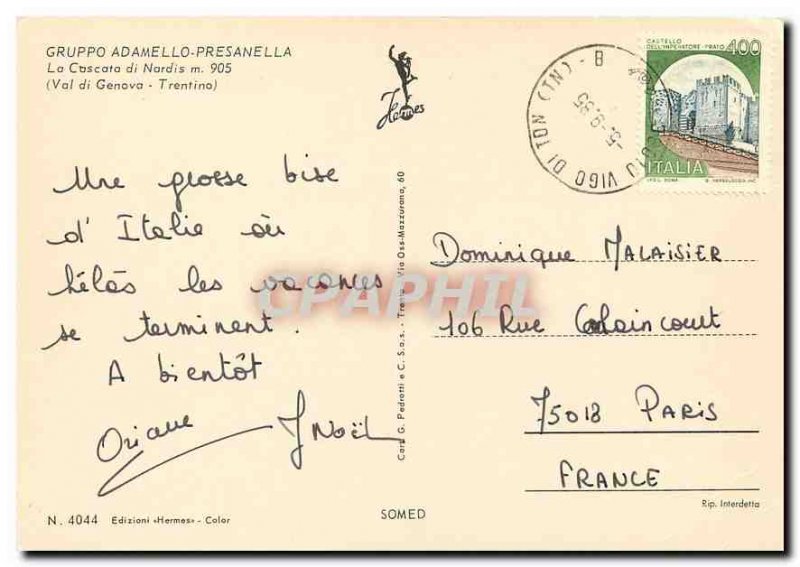 GRUPPO ADAMELLO-PRESANELLA
La Cascata di Nardis m. 905
(Val di Genova - Trentino)
Hermes
CASTELLO
DELL'IMPERATORE - PRATO
400
ITALIA
VIGO DI TON (TN) - B
5-9-85
Une grosse bise
d'Italie où
hélas les vacances
se terminent.
A bientôt
Oriane JNoël
Cart. G. Pedrotti e C. S.a.s. - Trento Via Oss-Mazzurana, 60
CPAPHIL
Dominique MALAISIER
106 Rue Caulaincourt
75018 PARIS
FRANCE
Rip. Interdetta
N. 4044 Edizioni «Hermes» - Color
SOMED